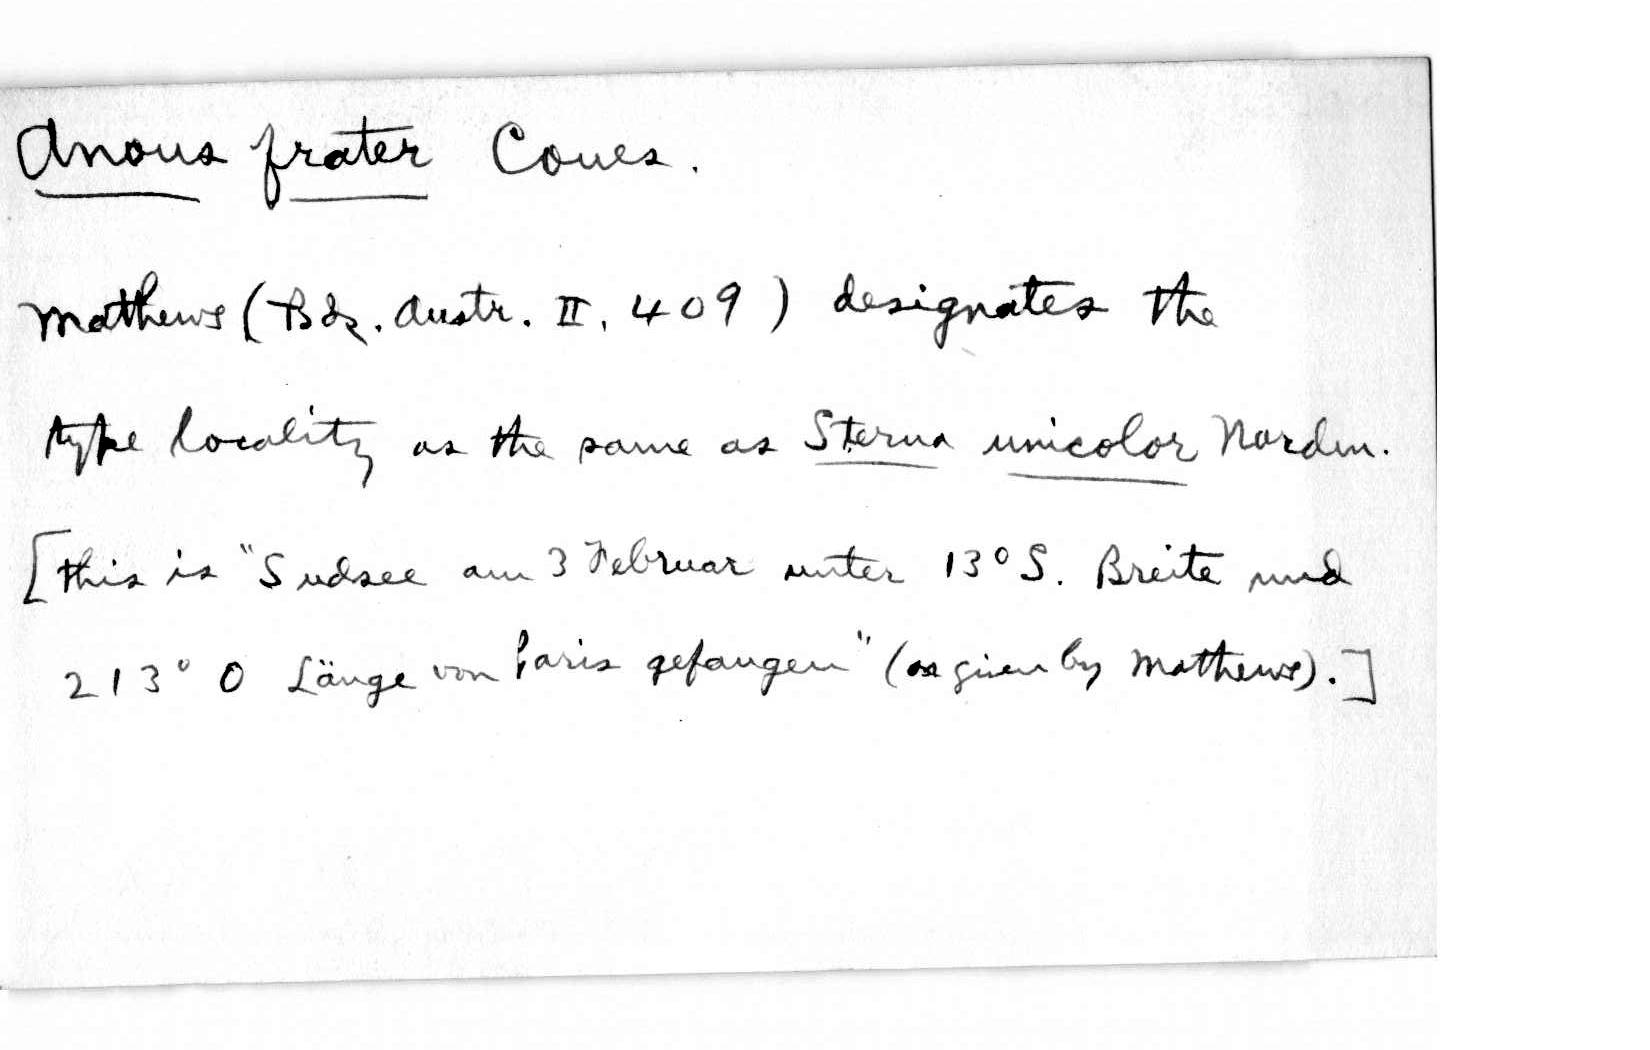 Anous frater Coues.
Mathews (Bds. Austr. II, 409) designates the
type locality as the same as Sterna unicolor Nordm.
[This is "Sudsee am 3 Februar unter 13° S. Breite und
213° O Länge von Paris gefangen" (as given by Mathews).]